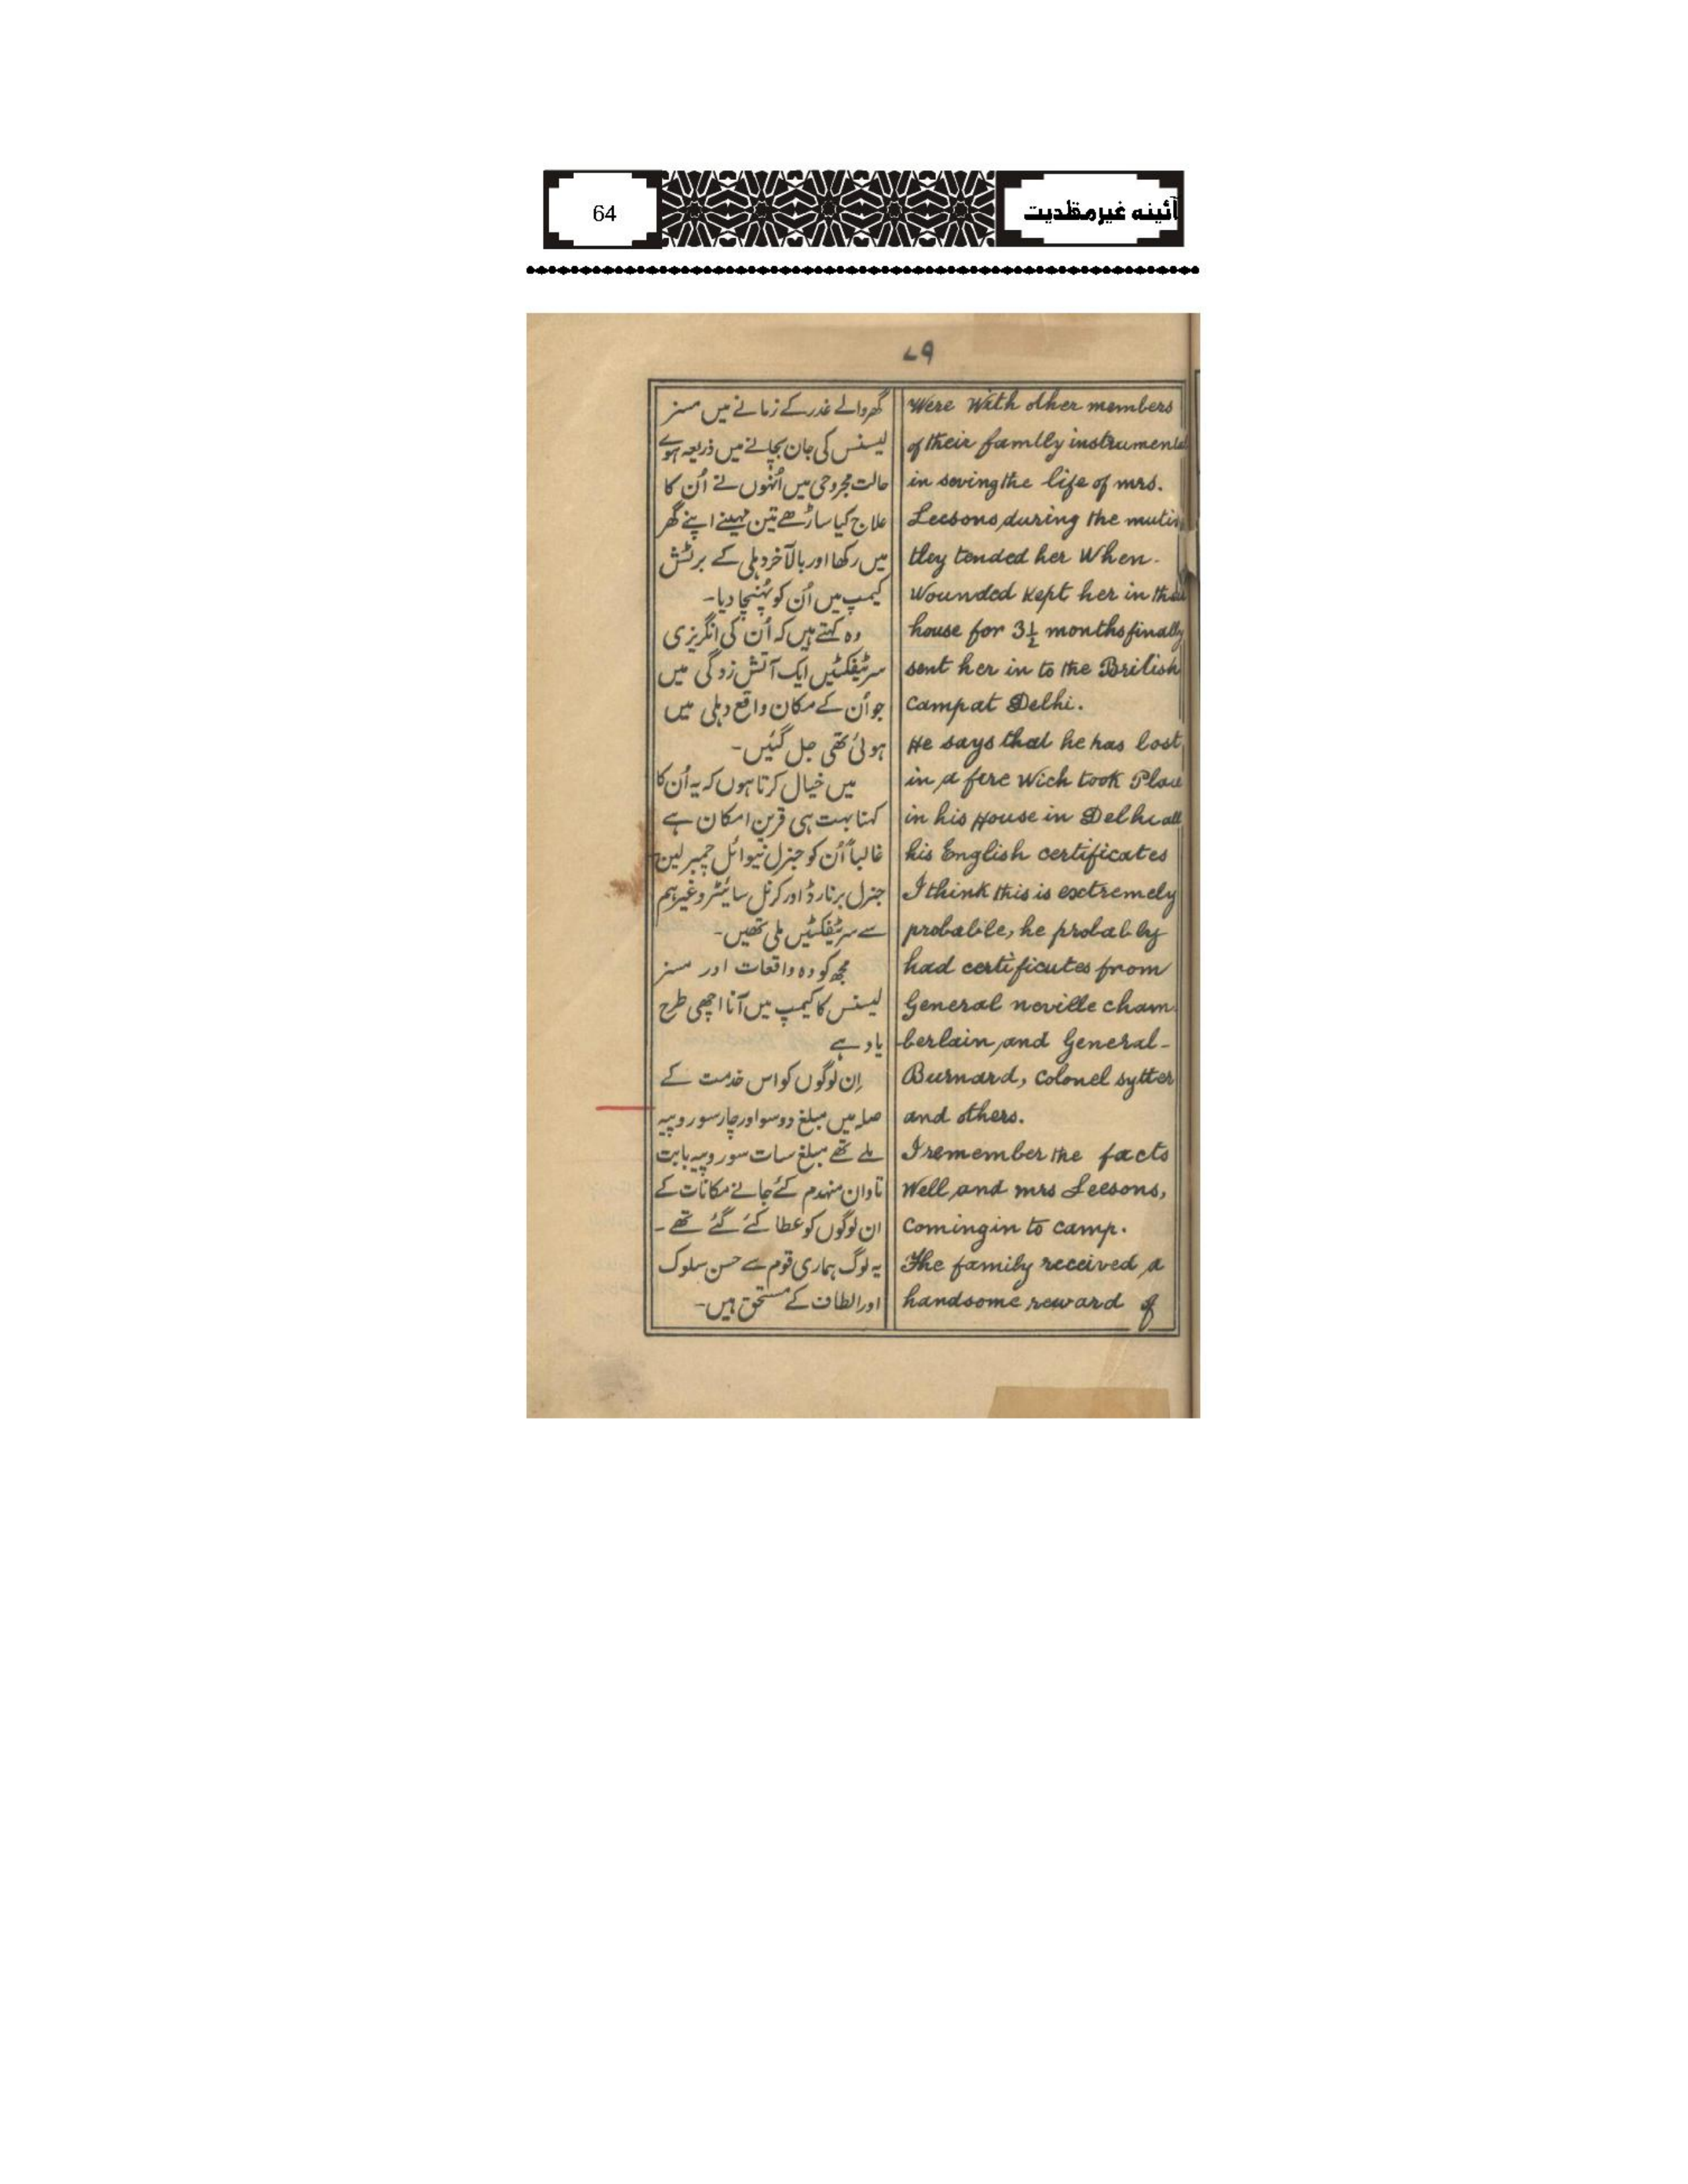 آئینہ غیرمقلدیت
64
۷۹
گھر والے غدر کے زمانے میں مسز
لیسنس کی جان بچانے میں ذریعہ ہوے
حالت مجروحی میں اُنہوں نے اُن کا
علاج کیا ساڑھے تین مہینے اپنے گھر
میں رکھا اور بالآخر دہلی کے برٹش
کیمپ میں اُن کو پہنچا دیا۔
وہ کہتے ہیں کہ اُن کی انگریزی
سرٹیفکٹیں ایک آتش زدگی میں
جو اُن کے مکان واقع دہلی میں
ہوئی تھی جل گئیں۔
میں خیال کرتا ہوں کہ یہ اُن کا
کہنا بہت ہی قرین امکان ہے
غالباً اُن کو جنرل نیوائل چمبرلین
جنرل برنارڈ اور کرنل سائیٹر وغیرہم
سے سرٹیفکٹیں ملی تھیں۔
مجھ کو وہ واقعات اور مسز
لیسنس کا کیمپ میں آنا اچھی طرح
یاد ہے
اِن لوگوں کو اس خدمت کے
صلہ میں مبلغ دو سو اور چار سو روپیہ
ملے تھے مبلغ سات سو روپیہ بابت
تاوان منہدم کئے جانے مکانات کے
ان لوگوں کو عطا کئے گئے تھے۔
یہ لوگ ہماری قوم سے حسن سلوک
اور الطاف کے مستحق ہیں۔
Were With other members
of their familly instrumental
in soving the life of mrs.
Leesons, during the mutin
they tended her When.
Wounded Kept her in their
house for 3½ months finally
sent her in to the British
camp at Delhi.
He says that he has lost
in a fire Wich took Place
in his House in Delhi all
his English certificates
I think this is extremely
probable, he probably
had certificates from
General neville cham
berlain, and General-
Burnard, Colonel sytter
and others.
I remember the facts
Well, and mrs Leesons,
Coming in to camp.
The family received a
handsome reward of